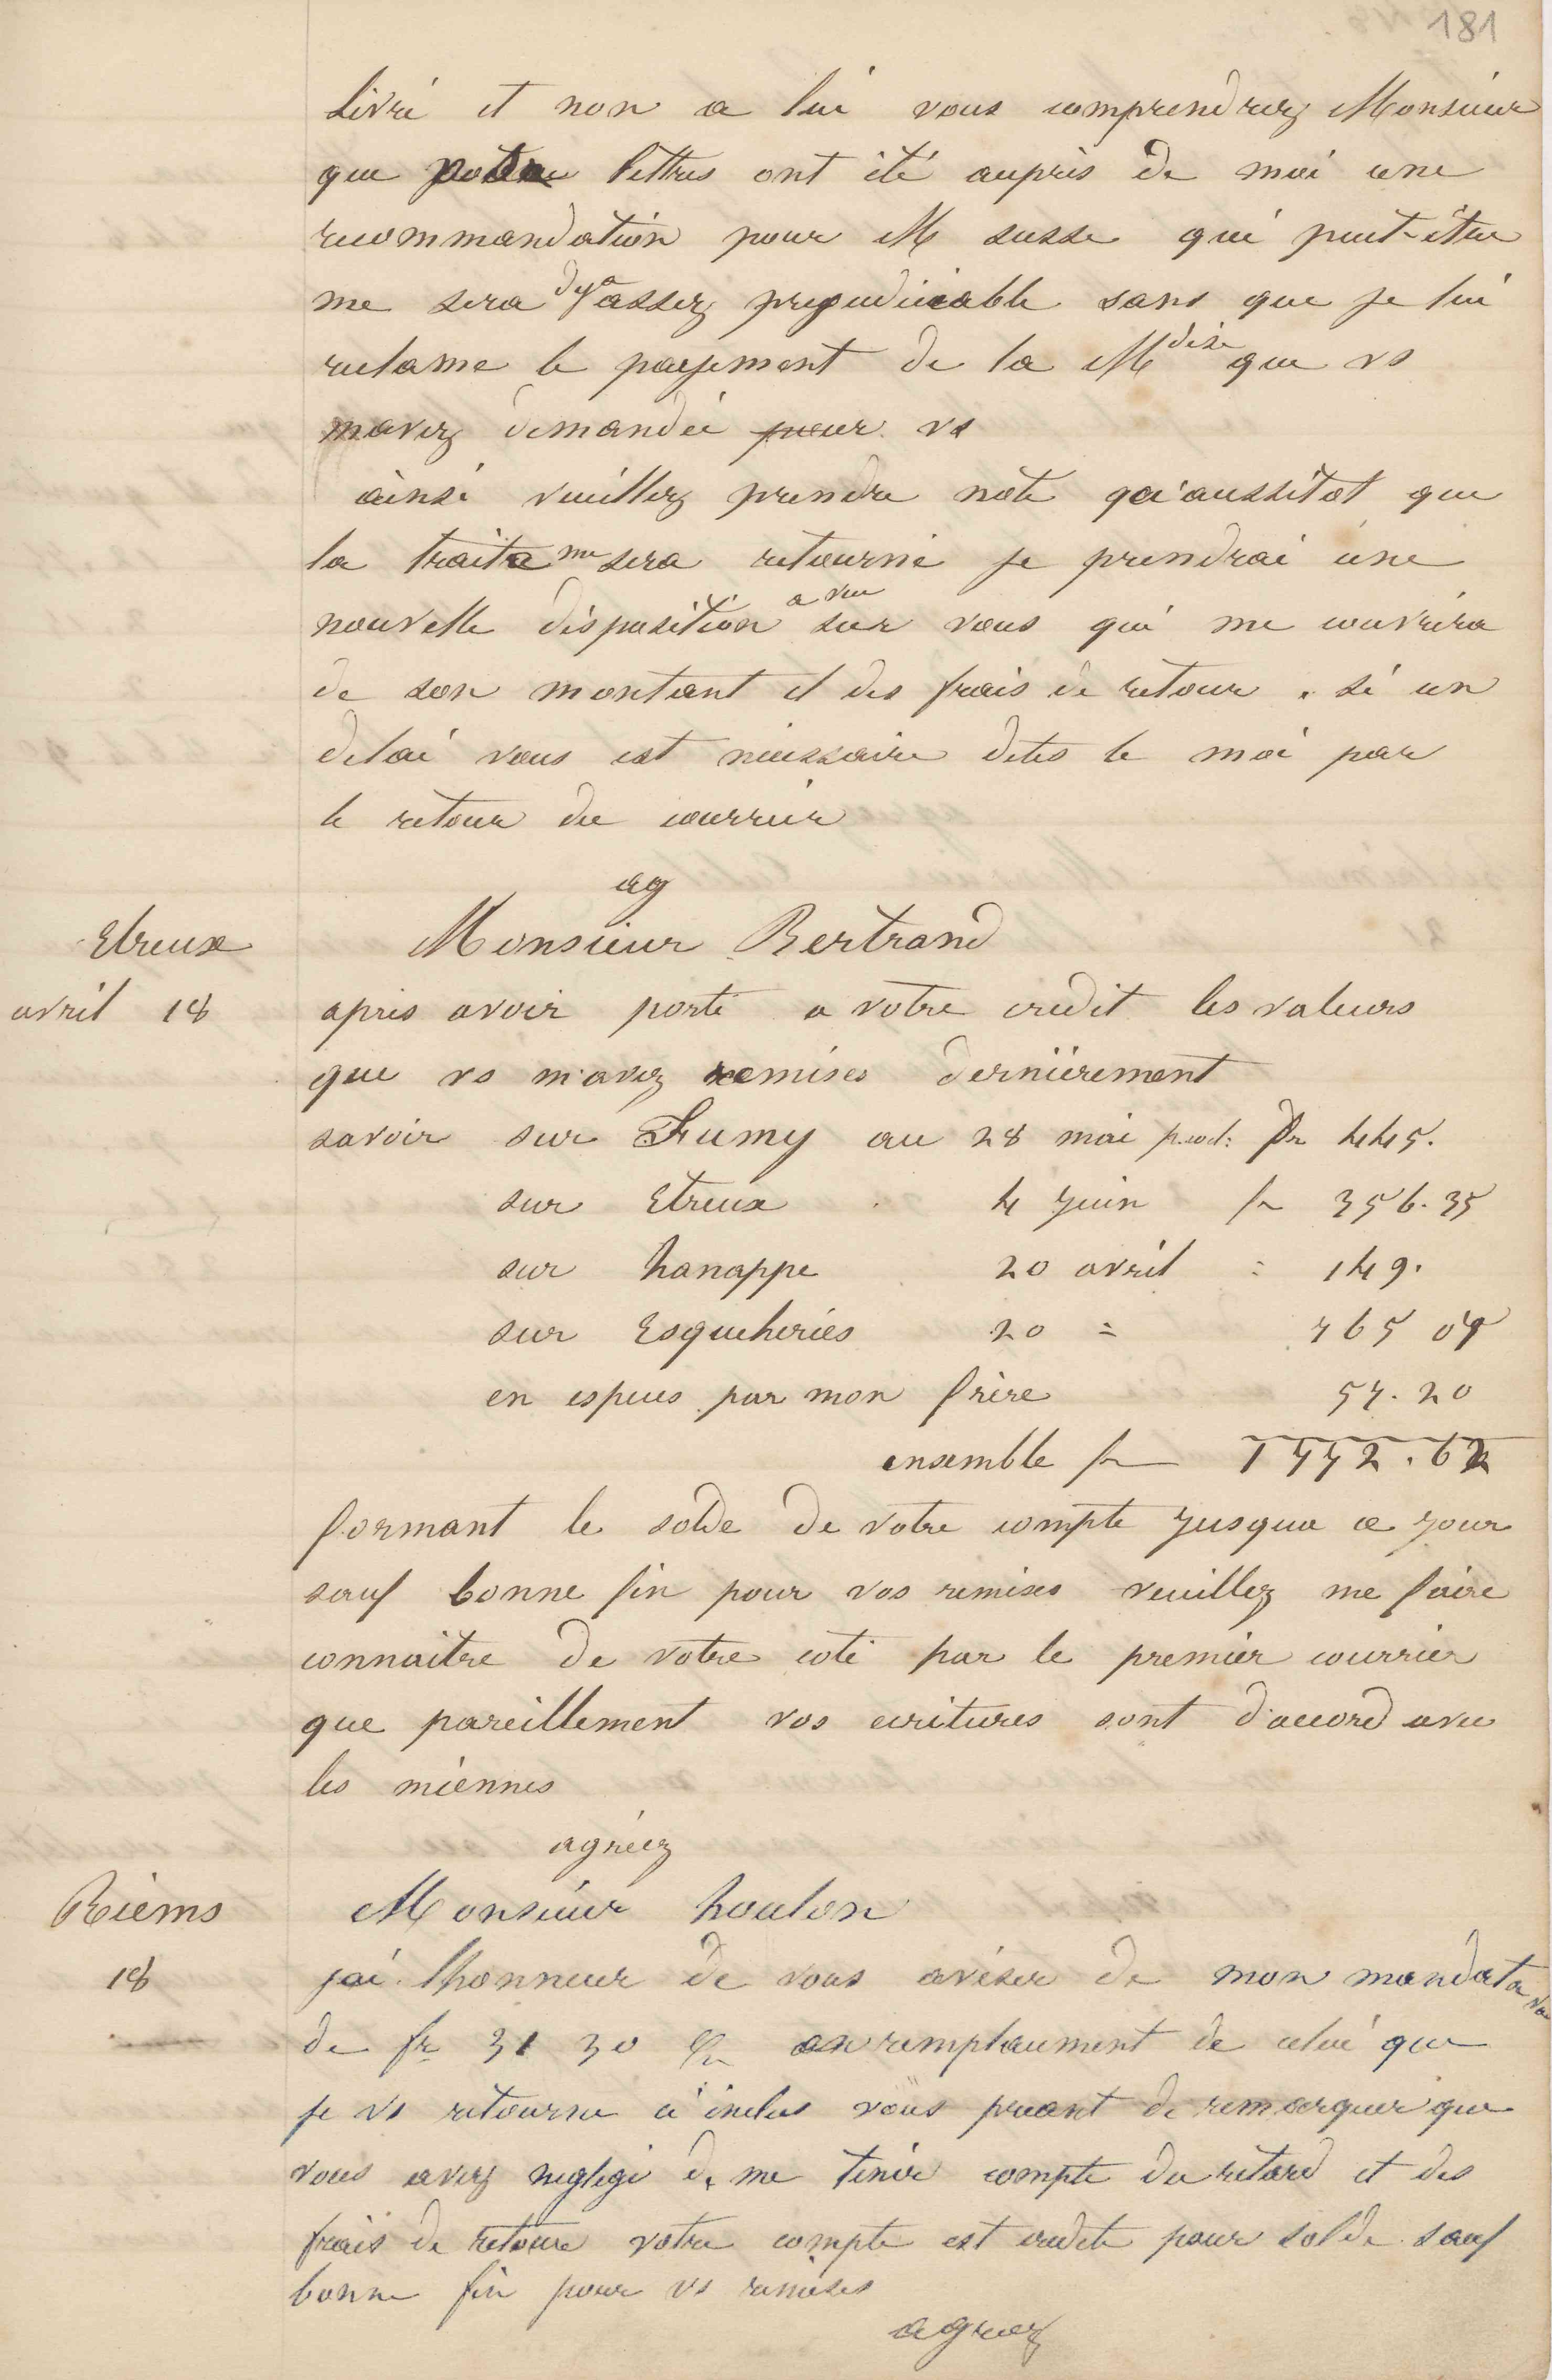 181
livré et non a lui vous comprendrez Monsieur
que lettres ont été aupres de moi une
recommandation pour M susse qui peut-être
me sera deja assez prejudiciable sans que je lui
reclame le payement de la Mdise que vs
mavez demandée pour vs
ainsi veuillez prendre note qu'aussitot que
la traite me sera retourné je prendrai une
nouvelle disposition a vue sur vous qui me couvrira
de son montant et des frais de retour . si un
delai vous est nécessaire dites le moi par
le retour du courrier
ag
Etreux
Monsieur Bertrand
avril 18
apres avoir porté a votre credit les valeurs
que vs m'avez remises dernièrement
savoir sur Frumy au 28 mai prod: fr 445.
sur Etreux 4 Juin fr 356.35
sur hanappe 20 avril = 149.
sur Esqueheries 20 = 765 07
en especes par mon frère 57.20
ensemble fr 1772.62
formant le solde de votre compte Jusqua ce Jour
sauf bonne fin pour vos remises veuillez me faire
connaitre de votre coté par le premier courrier
que pareillement vos ecritures sont d'accord avec
les miennes
agréez
Reims
Monsieur houlon
18
jai lhonneur de vous aviser de mon mandat a vue
de fr 31 30 en remplacement de celui que
je vs retourne ci inclus vous priant de remarquer que
vous avez neglegé de me tenir compte du retard et des
frais de retour votre compte est credité pour solde sauf
bonne fin pour vs remises
agreez